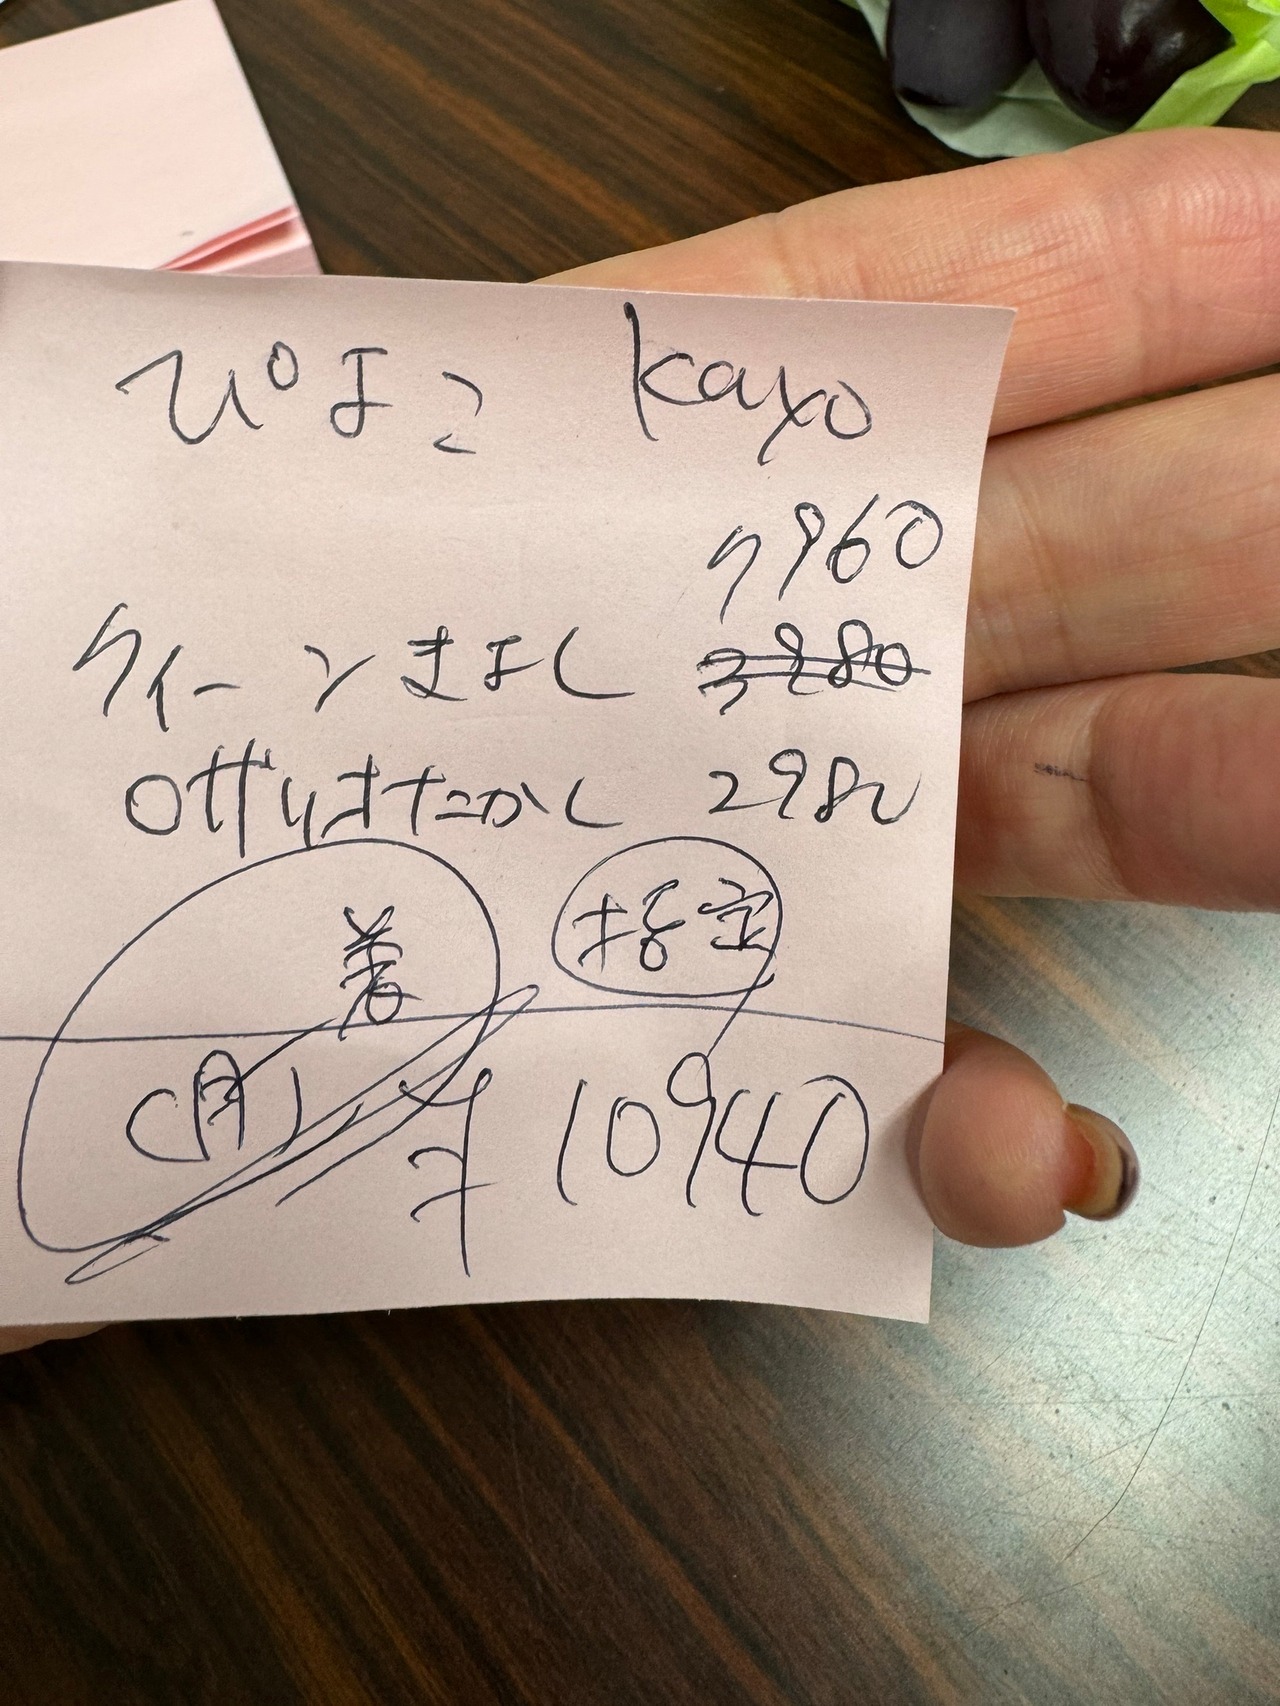 ぴよこ kayo
7960
クィーンまよし 3980
0ザりまたかし 2980
着 指定
(月) 〒 10940